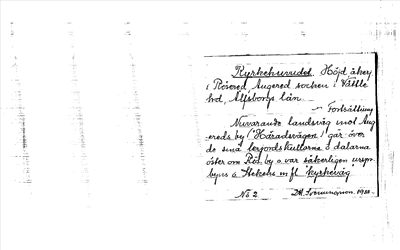 Kyrkehuvudet. Höjd, åker
i Rösered, Angered socken i Vättle
hd, Älfsborgs län. —
— Fortsättning
Nuvarande landsväg mot Ang
ereds by (Häradsvägen) går över
de små lerjordskullarne o dalarna
öster om Rös. by o var säkerligen urspr.
byns o Stekens m fl kyrkeväg
No 2.
1920.